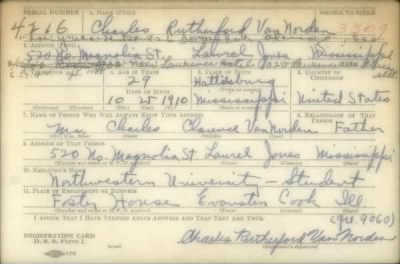 SERIAL NUMBER 1. NAME (PRINT) ORDER NUMBER
4216 Charles Rutherford Van Norden
2. ADDRESS (PRINT)
520 No. Magnolia St. Laurel Jones Mississippi
3. TELEPHONE 4. AGE IN YEARS 5. PLACE OF BIRTH 6. COUNTRY OF CITIZENSHIP
29 Hattiesburg
DATE OF BIRTH
10 25 1910 Mississippi United States
7. NAME OF PERSON WHO WILL ALWAYS KNOW YOUR ADDRESS 8. RELATIONSHIP OF THAT PERSON
Mr. Charles Clarence Van Norden Father
9. ADDRESS OF THAT PERSON
520 No. Magnolia St. Laurel Jones Mississippi
10. EMPLOYER'S NAME
Northwestern University - Student
11. PLACE OF EMPLOYMENT OR BUSINESS
Foster House Evanston Cook Ill
(Gre 9060)
I AFFIRM THAT I HAVE VERIFIED ABOVE ANSWERS AND THAT THEY ARE TRUE.
REGISTRATION CARD
D. S. S. FORM 1
Charles Rutherford Van Norden